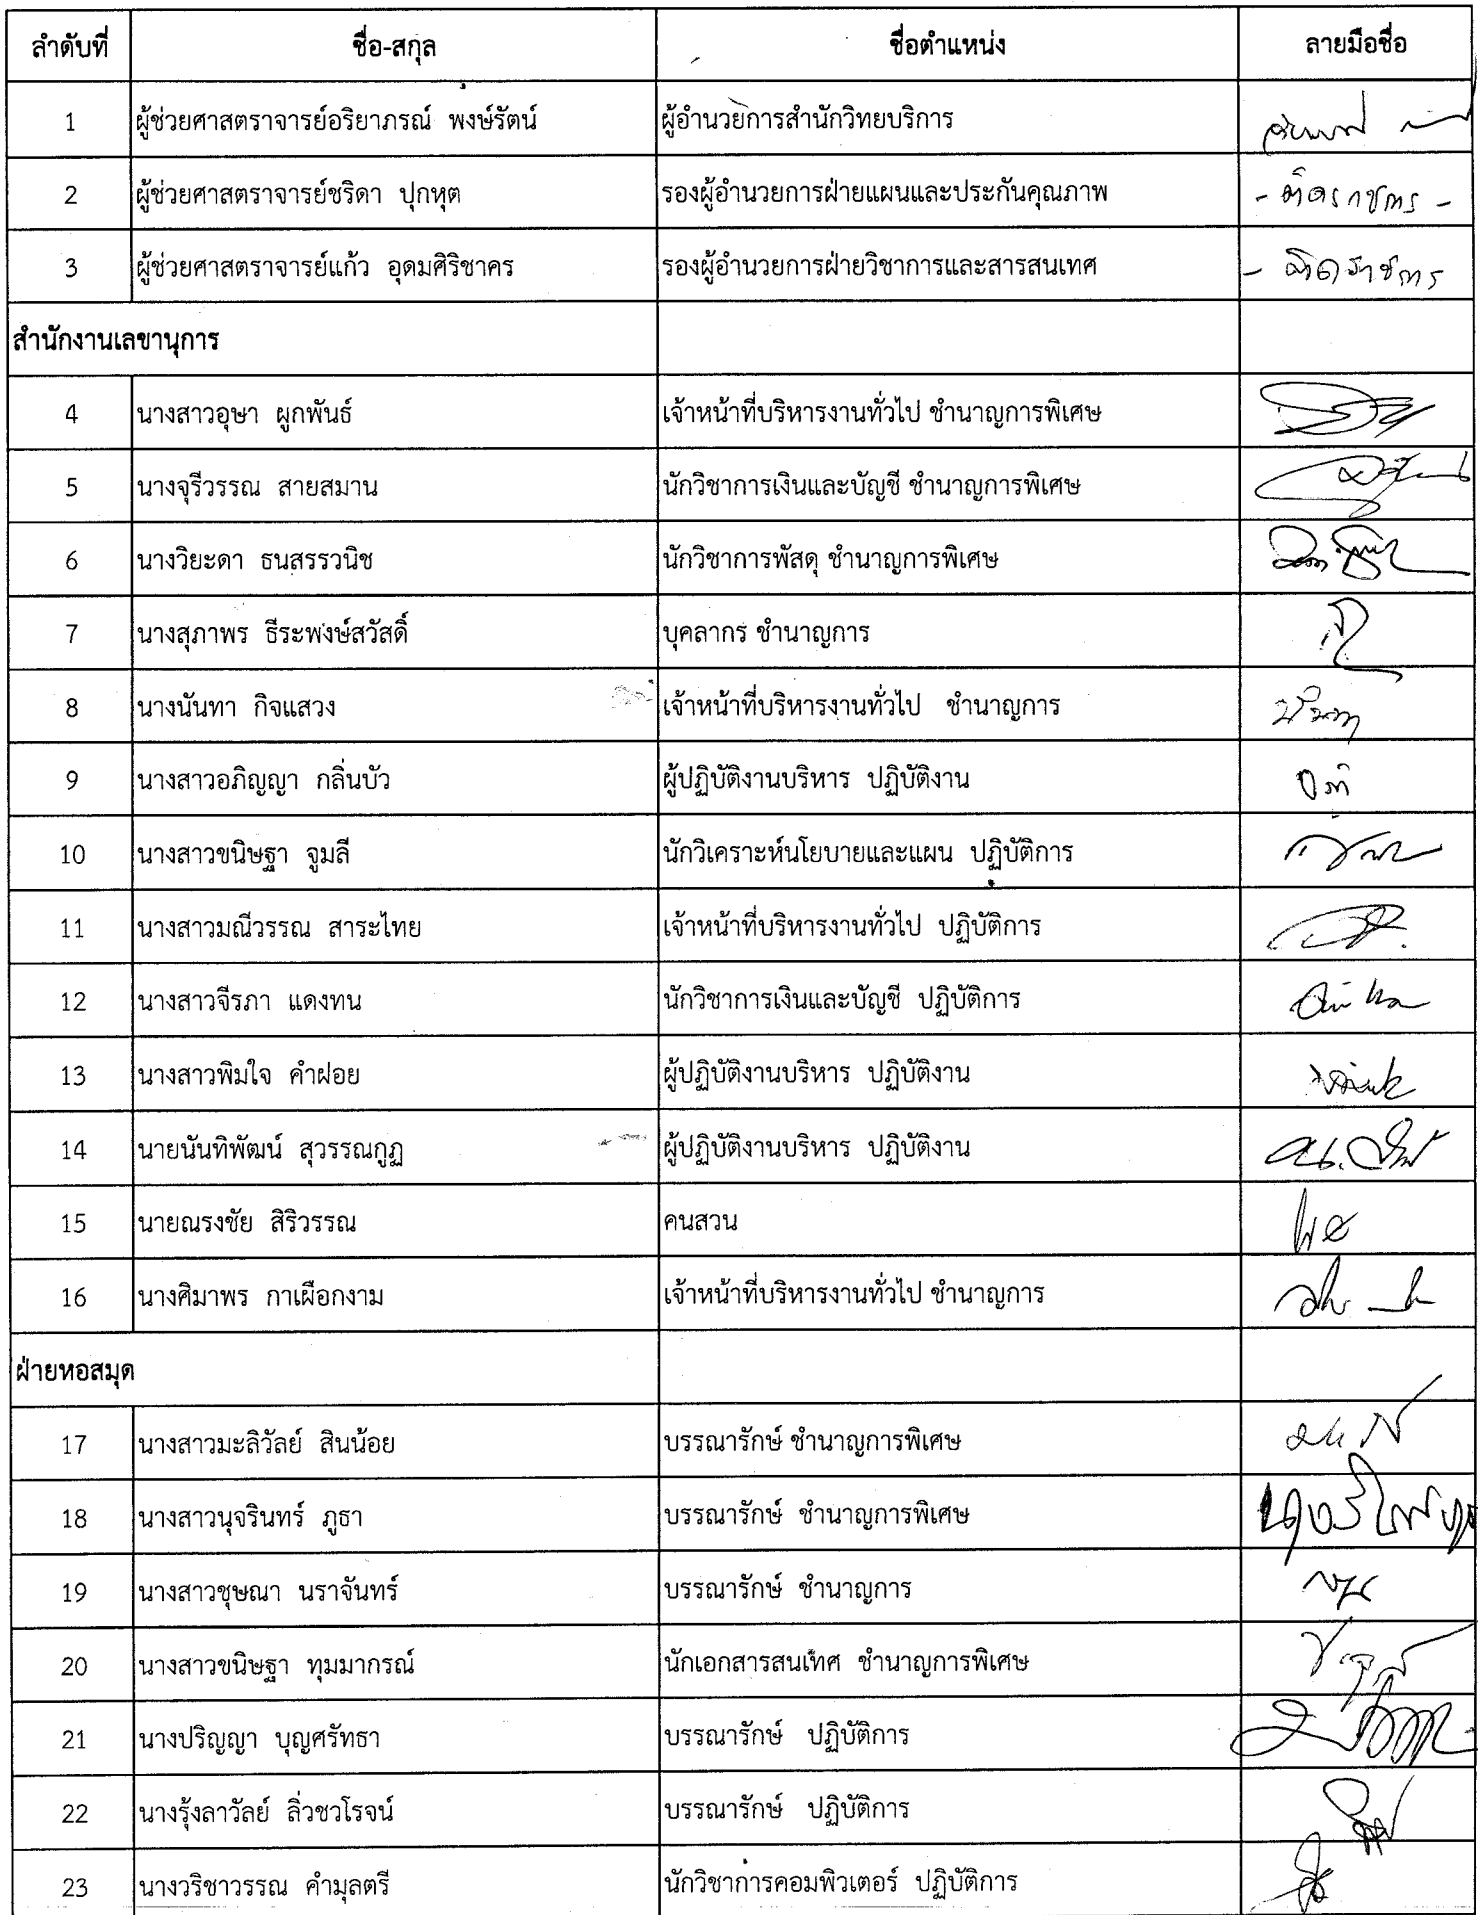 ลำดับที่ ชื่อ-สกุล ชื่อตำแหน่ง ลายมือชื่อ
1 ผู้ช่วยศาสตราจารย์อริยาภรณ์ พงษ์รัตน์ ผู้อำนวยการสำนักวิทยบริการ
2 ผู้ช่วยศาสตราจารย์ชริดา ปุกหุต รองผู้อำนวยการฝ่ายแผนและประกันคุณภาพ - ติดราชการ -
3 ผู้ช่วยศาสตราจารย์แก้ว อุดมศิริชาคร รองผู้อำนวยการฝ่ายวิชาการและสารสนเทศ - ติดราชการ
สำนักงานเลขานุการ
4 นางสาวอุษา ผูกพันธ์ เจ้าหน้าที่บริหารงานทั่วไป ชำนาญการพิเศษ
5 นางจุรีวรรณ สายสมาน นักวิชาการเงินและบัญชี ชำนาญการพิเศษ
6 นางวิยะดา ธนสรรวนิช นักวิชาการพัสดุ ชำนาญการพิเศษ
7 นางสุภาพร ธีระพงษ์สวัสดิ์ บุคลากร ชำนาญการ
8 นางนันทา กิจแสวง เจ้าหน้าที่บริหารงานทั่วไป ชำนาญการ นันทา
9 นางสาวอภิญญา กลิ่นบัว ผู้ปฏิบัติงานบริหาร ปฏิบัติงาน
10 นางสาวขนิษฐา จูมลี นักวิเคราะห์นโยบายและแผน ปฏิบัติการ
11 นางสาวมณีวรรณ สาระไทย เจ้าหน้าที่บริหารงานทั่วไป ปฏิบัติการ
12 นางสาวจีรภา แดงทน นักวิชาการเงินและบัญชี ปฏิบัติการ
13 นางสาวพิมใจ คำฝอย ผู้ปฏิบัติงานบริหาร ปฏิบัติงาน
14 นายนันทิพัฒน์ สุวรรณกูฏ ผู้ปฏิบัติงานบริหาร ปฏิบัติงาน
15 นายณรงชัย สิริวรรณ คนสวน
16 นางศิมาพร กาเผือกงาม เจ้าหน้าที่บริหารงานทั่วไป ชำนาญการ
ฝ่ายหอสมุด
17 นางสาวมะลิวัลย์ สินน้อย บรรณารักษ์ ชำนาญการพิเศษ
18 นางสาวนุจรินทร์ ภูธา บรรณารักษ์ ชำนาญการพิเศษ
19 นางสาวชุษณา นราจันทร์ บรรณารักษ์ ชำนาญการ
20 นางสาวขนิษฐา ทุมมากรณ์ นักเอกสารสนเทศ ชำนาญการพิเศษ
21 นางปริญญา บุญศรัทธา บรรณารักษ์ ปฏิบัติการ
22 นางรุ้งลาวัลย์ ลิ่วชวโรจน์ บรรณารักษ์ ปฏิบัติการ
23 นางวริชาวรรณ คำมุลตรี นักวิชาการคอมพิวเตอร์ ปฏิบัติการ